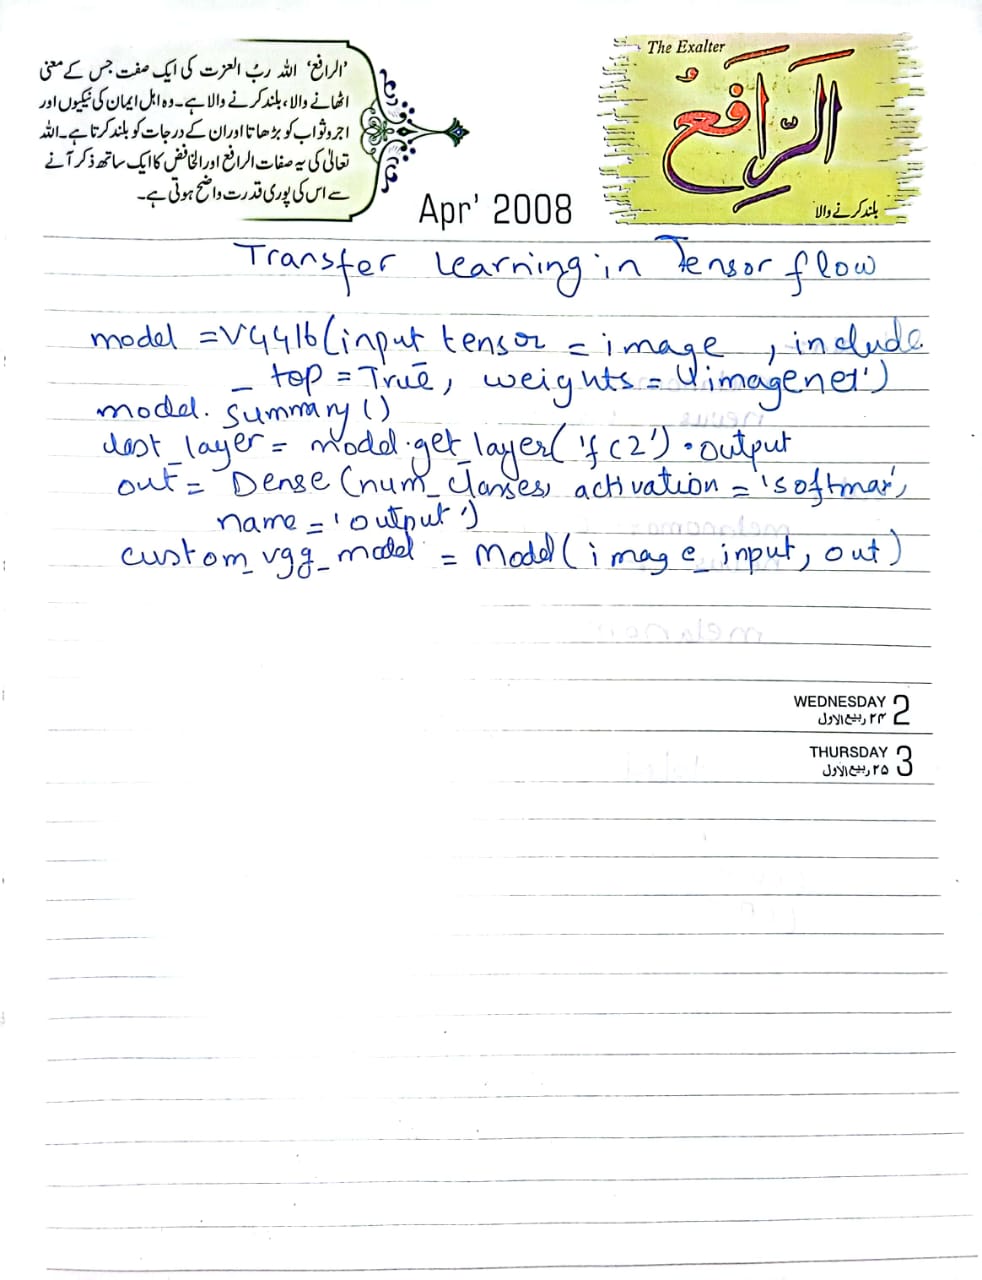 'الرافع' اللہ ربُ العزت کی ایک صفت جس کے معنی
اٹھانے والا، بلند کرنے والا ہے۔ وہ اہل ایمان کی نیکیوں اور
اجر و ثواب کو بڑھاتا اور ان کے درجات کو بلند کرتا ہے۔ اللہ
تعالیٰ کی یہ صفات الرافع اور الخافض کا ایک ساتھ ذکر آنے
سے اس کی پوری قدرت واضح ہوتی ہے۔
The Exalter
الرَّافِعُ
بلند کرنے والا
Apr' 2008
Transfer Learning in Tensor flow
model = VGG16(input tensor = image , include
_ top = True, weights = 'imagenet')
model. Summary()
last_layer = model.get_layer('fc2').output
out = Dense (num_classes, activation = 'softmax',
name = 'output')
custom_vgg_model = Model(image_input, out)
WEDNESDAY 2
۲۴ ربیع الاول
THURSDAY 3
۲۵ ربیع الاول